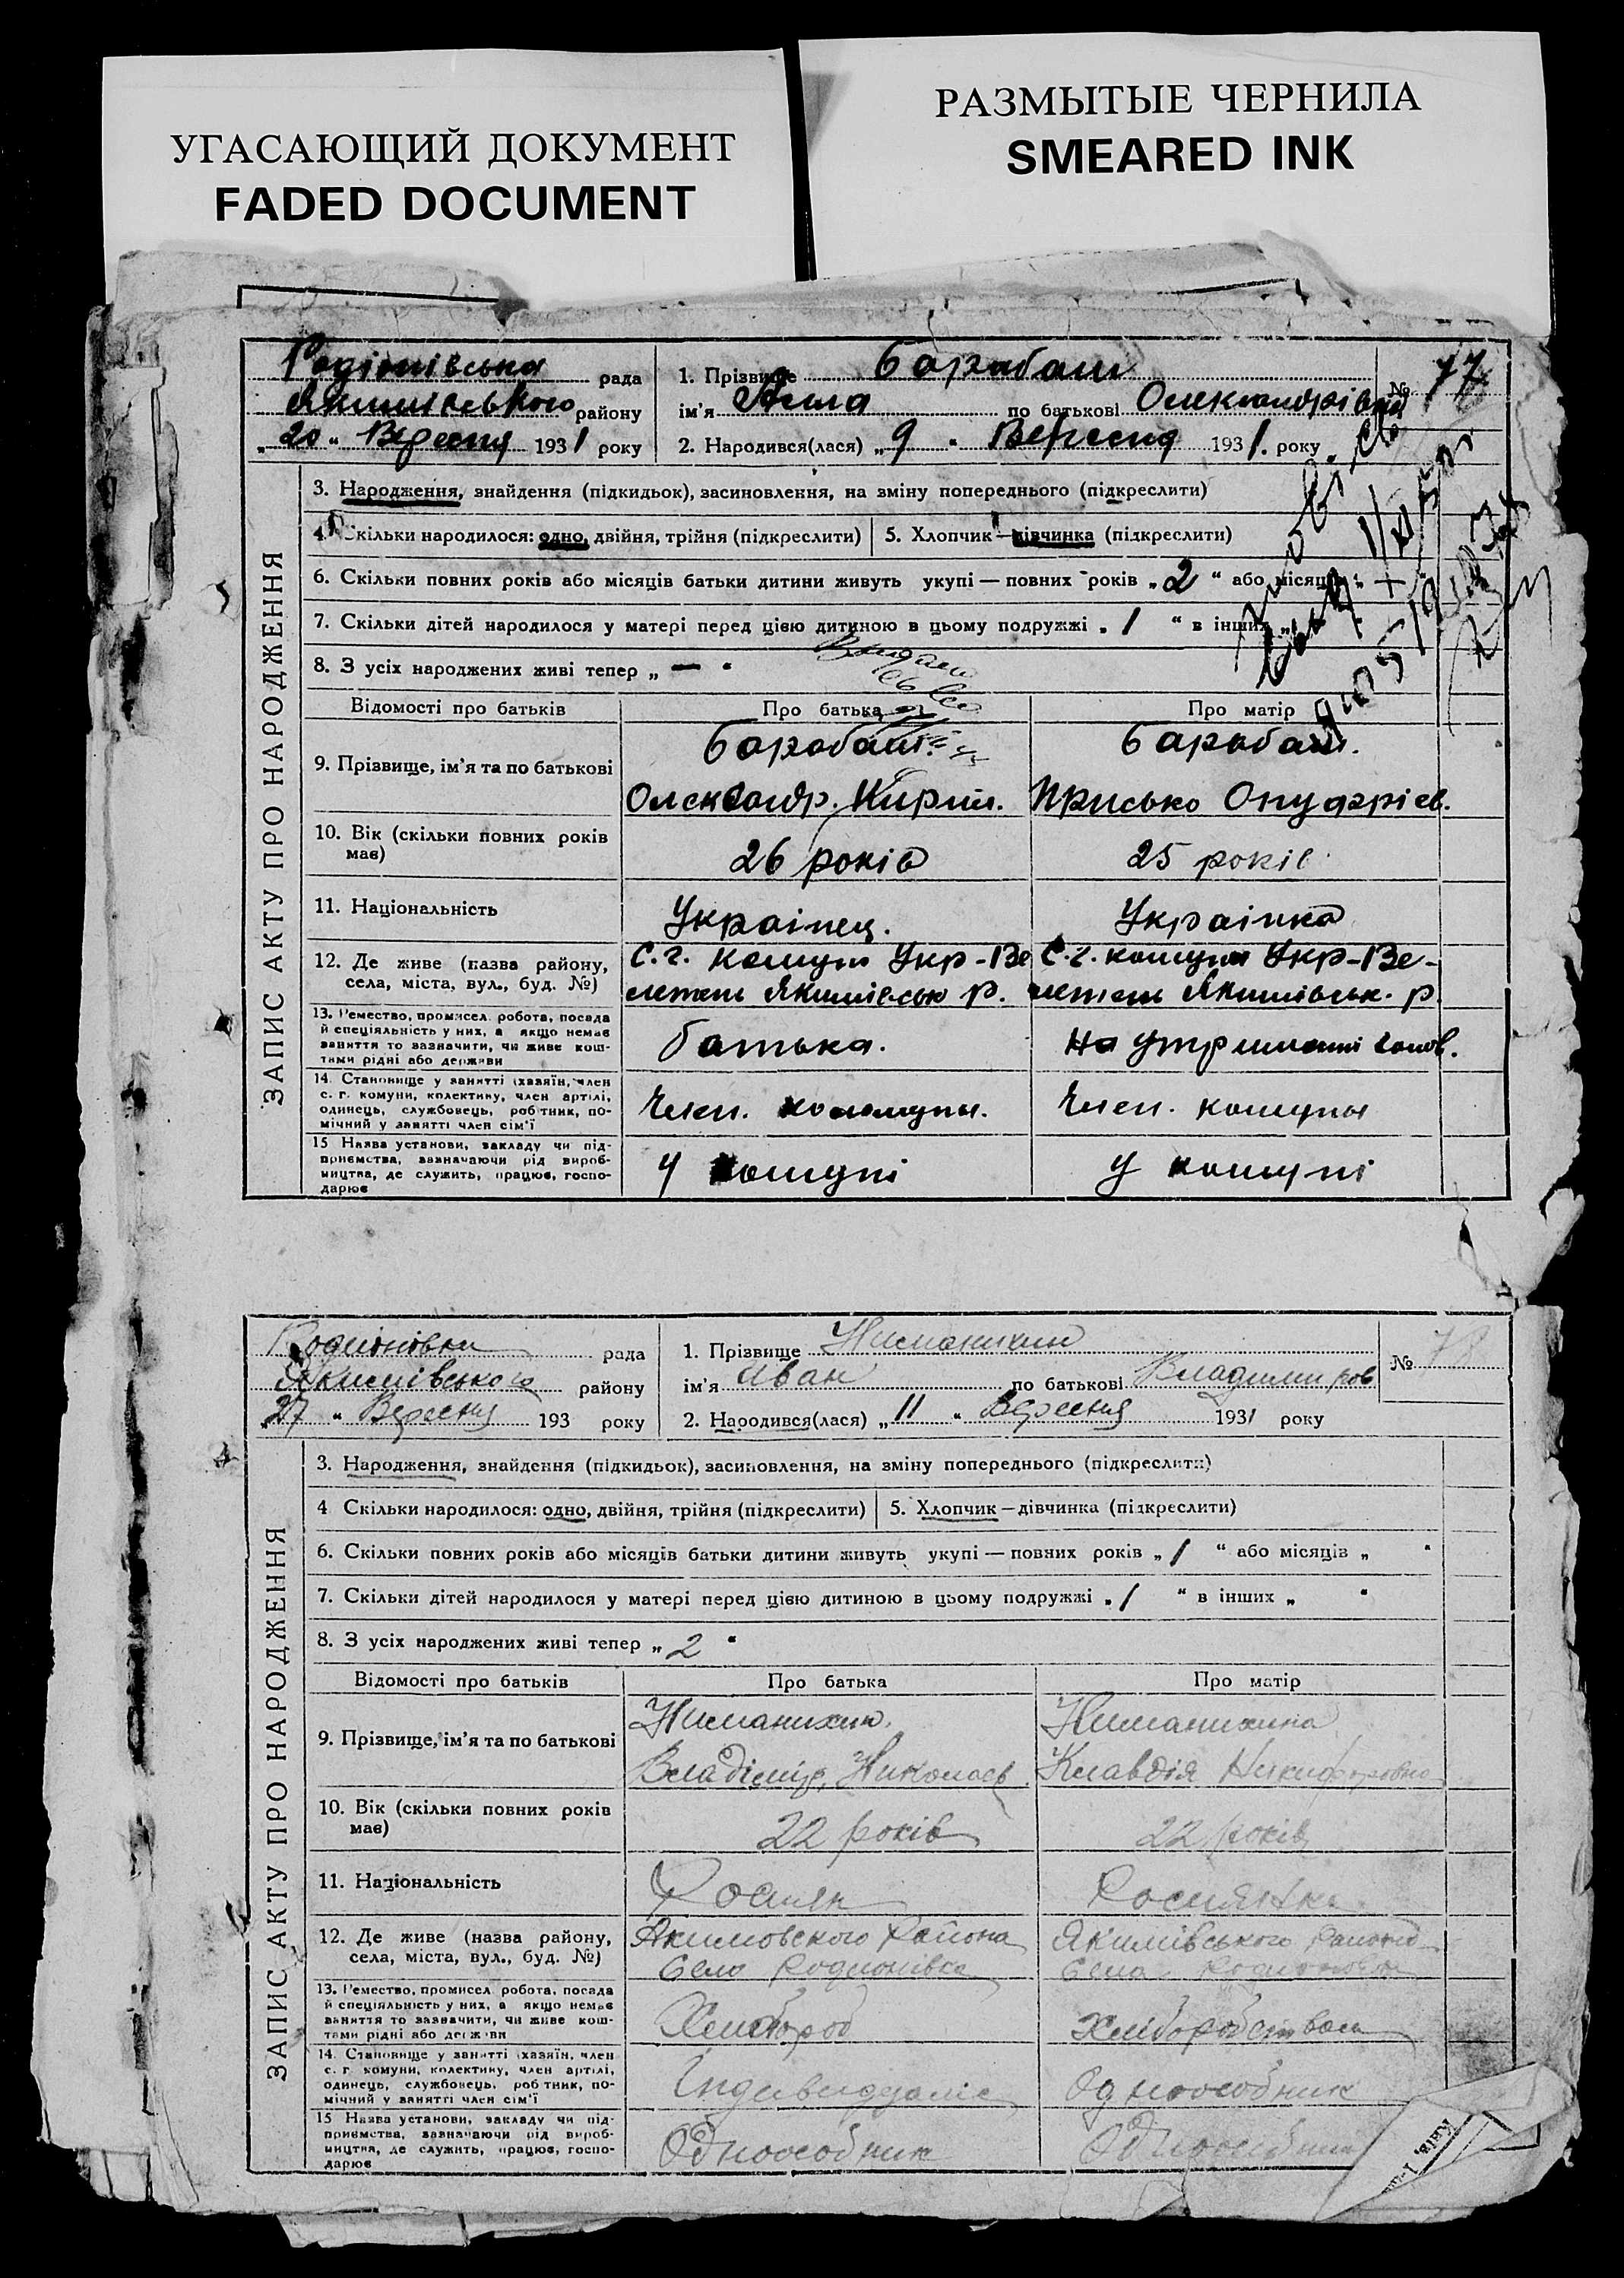 УГАСАЮЩИЙ ДОКУМЕНТ
FADED DOCUMENT
РАЗМЫТЫЕ ЧЕРНИЛА
SMEARED INK
Родіонівська рада
Якимівського району
„20“ Вересня 1931 року
1. Прізвище Барабаш
ім'я Алла по батькові Олександрівна
№ 77
2. Народився(лася) „9“ Вересня 1931. року
ЗАПИС АКТУ ПРО НАРОДЖЕННЯ
3. Народження, знайдення (підкидьок), засиновлення, на зміну попереднього (підкреслити)
4. Скільки народилося: одно, двійня, трійня (підкреслити) 5. Хлопчик—дівчинка (підкреслити)
6. Скільки повних років або місяців батьки дитини живуть укупі — повних років „2“ або місяців „
7. Скільки дітей народилося у матері перед цією дитиною в цьому подружжі „1“ в інших „
8. З усіх народжених живі тепер „—“
Відомості про батьків Про батька Про матір
9. Прізвище, ім'я та по батькові
Барабаш. Барабаш.
Олександр. Кирил. Присько Онуфріев.
10. Вік (скільки повних років має) 26 років 25 років
11. Національність Українец. Українка
12. Де живе (назва району, села, міста, вул., буд. №)
С.г. комуна Укр-Ве С.г. комуна Укр-Ве-
летень Якимівськ р. летень Якимівськ. р.
13. Ремество, промисел, робота, посада
й спеціяльність у них, а якщо немає
заняття то зазначити, чи живе кош-
тами рідні або держави
батька. на утриманні
14. Становище у занятті (хазяїн, член
с. г. комуни, колективу, член артілі,
одинець, службовець, робітник, по-
мічний у занятті член сім'ї
Член. комуны. Член. комуны
15 Назва установи, закладу чи під-
приємства, зазначаючи рід вироб-
ництва, де служить, працює, госпо-
дарює
У комуні У комуні
Родионовка рада
Якимівського району
„27“ Вересня 193 року
1. Прізвище
ім'я Иван по батькові Владимиров
№ 78
2. Народився(лася) „11“ Вересня 1931 року
ЗАПИС АКТУ ПРО НАРОДЖЕННЯ
3. Народження, знайдення (підкидьок), засиновлення, на зміну попереднього (підкреслити)
4 Скільки народилося: одно, двійня, трійня (підкреслити) 5. Хлопчик—дівчинка (підкреслити)
6. Скільки повних років або місяців батьки дитини живуть укупі — повних років „1“ або місяців „ “
7. Скільки дітей народилося у матері перед цією дитиною в цьому подружжі „1“ в інших „ “
8. З усіх народжених живі тепер „2“
Відомості про батьків Про батька Про матір
9. Прізвище, ім'я та по батькові
Владімір Николаев Клавдія Никифоровна
10. Вік (скільки повних років має) 22 років 22 років
11. Національність Росиян Росиянка
12. Де живе (назва району, села, міста, вул., буд. №)
Якимовского Района Якимівського Району
Село Родионівка Села Родионовки
13. Ремество, промисел робота, посада
й спеціяльність у них, а якщо немає
заняття то зазначити, чи живе кош-
тами рідні або держави
Хлибороб Хліборобством
14. Становище у занятті (хазяїн, член
с. г. комуни, колективу, член артілі,
одинець, службовець, робітник, по-
мічний у занятті член сім'ї
Одноособник
15 Назва установи, закладу чи під-
приємства, зазначаючи рід вироб-
ництва, де служить, працює, госпо-
дарює
Одноособник Одноособник
Київ.